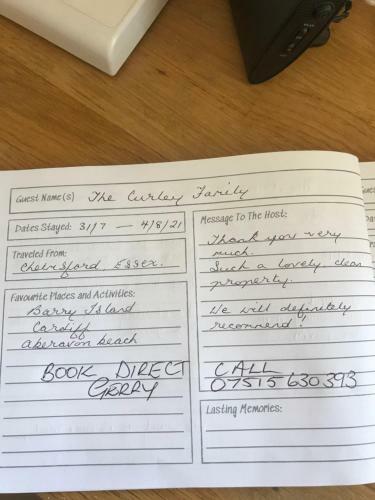 Guest Name(s) The Curley Family
Dates Stayed: 31/7 — 4/8/21
Traveled From:
Chelmsford, Essex.
Favourite Places and Activities:
Barry Island
Cardiff
aberavon beach
BOOK DIRECT
GERRY
Message To The Host:
Thank you very
much.
Such a lovely clean
property.
We will definitely
recommend!
CALL
07515 630 393
Lasting Memories: